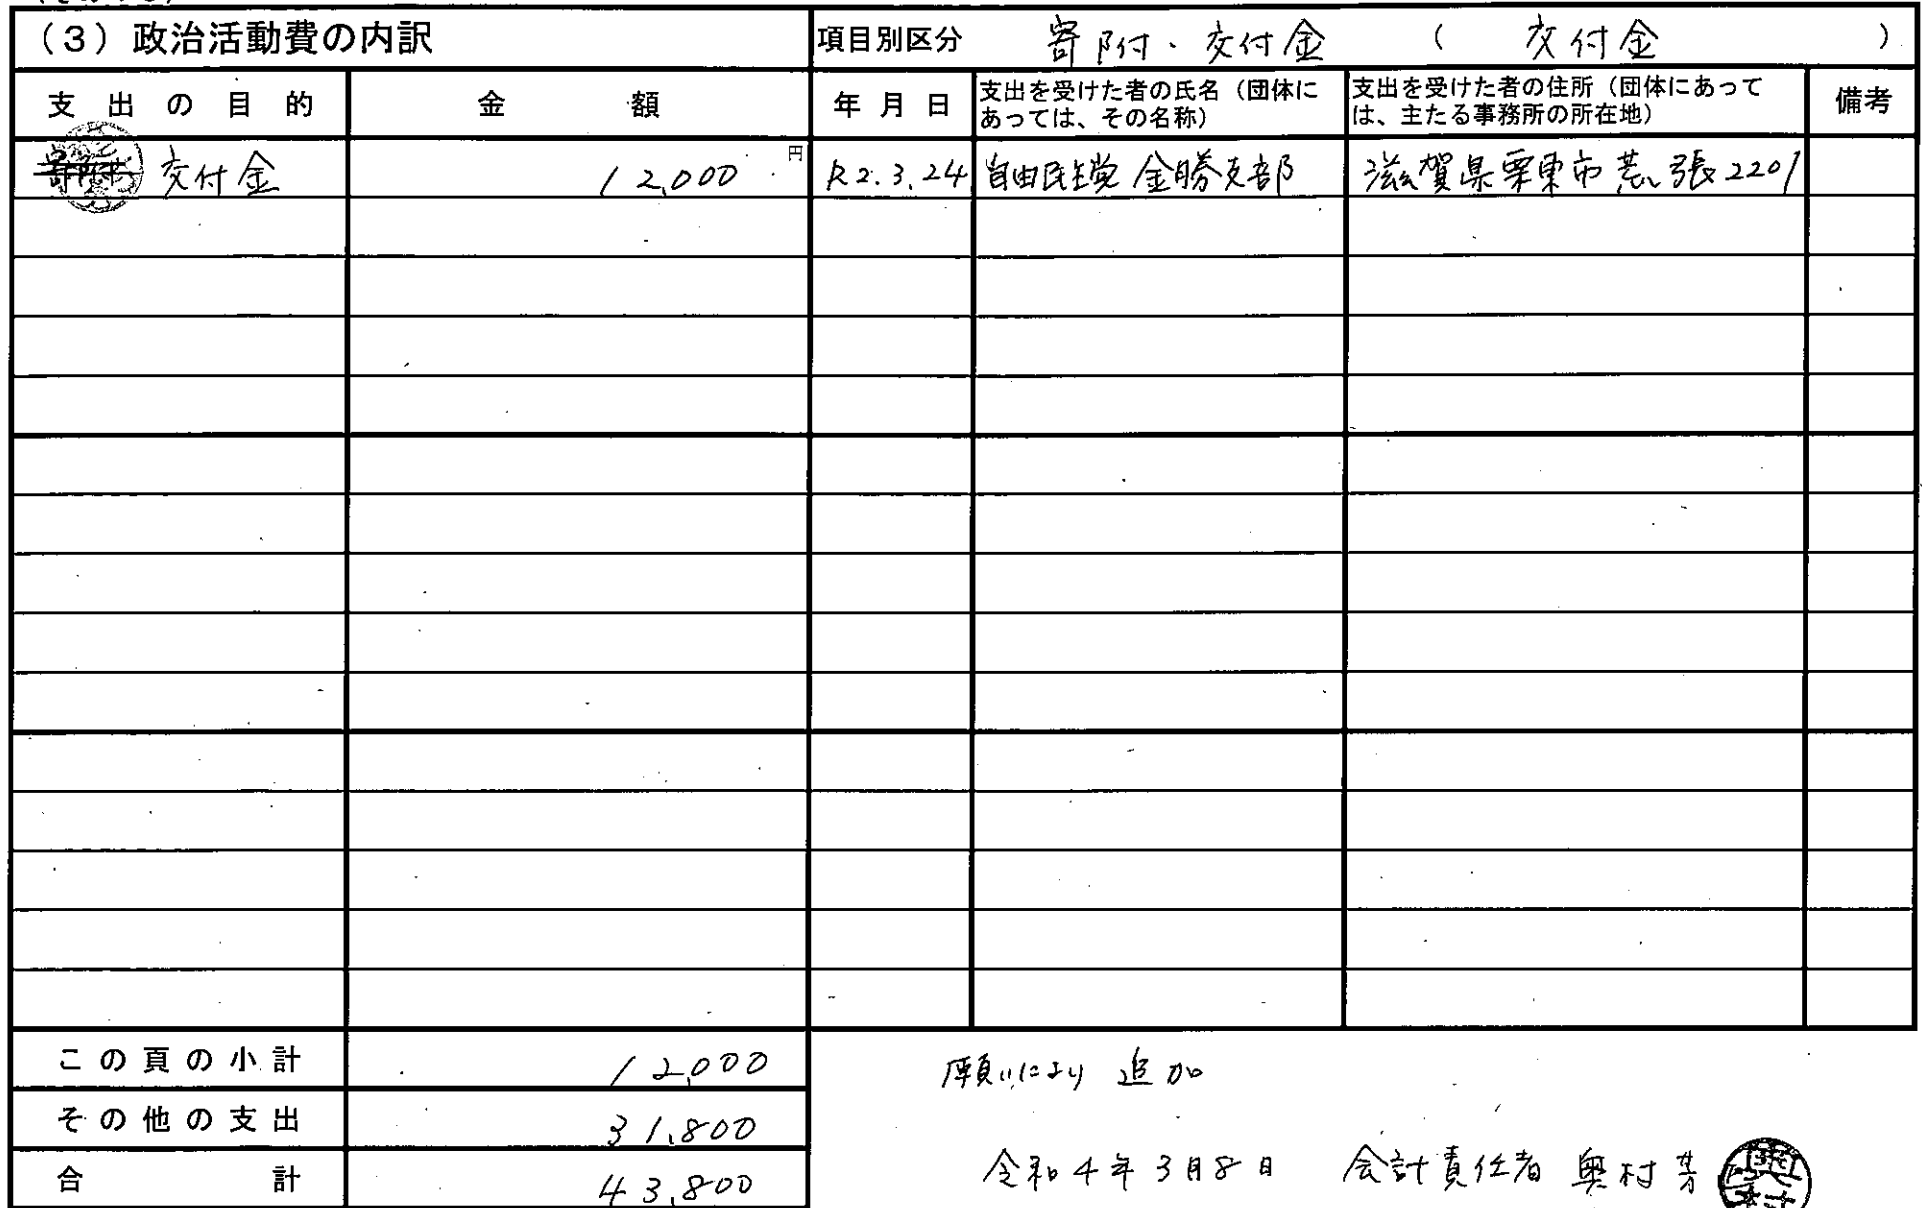 (3)政治活動費の内訳 項目別区分 寄附・交付金 ( 交付金 )
支出の目的 金額 年月日 支出を受けた者の氏名(団体にあっては、その名称) 支出を受けた者の住所(団体にあっては、主たる事務所の所在地) 備考
交付金 12,000 円 R2.3.24 自由民主党 金勝支部 滋賀県栗東市荒張2201
この頁の小計 12,000
願いにより 追加
その他の支出 31,800
合計 43,800
令和4年3月8日 会計責任者 奥村